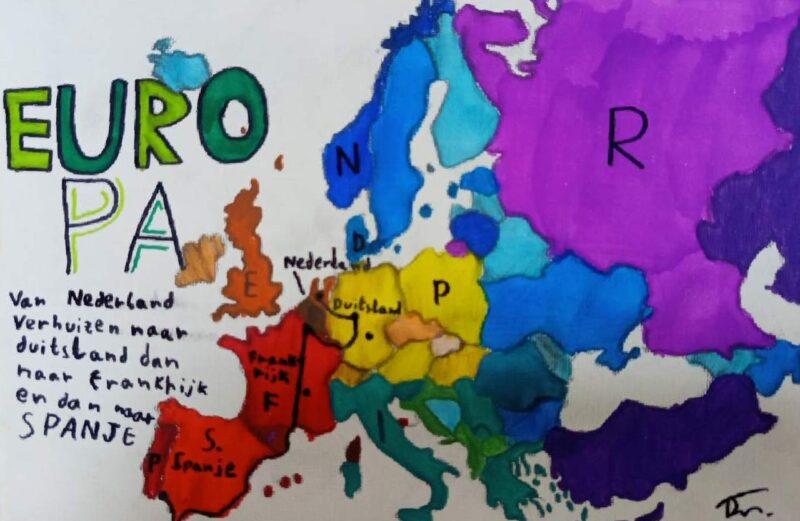 EURO
PA
Van Nederland
verhuizen naar
duitsland dan
naar frankrijk
en dan naar
SPANJE
N
R
D
E
Nederland
Duitsland
P
Frank
rijk
F
I
P
S.
Spanje